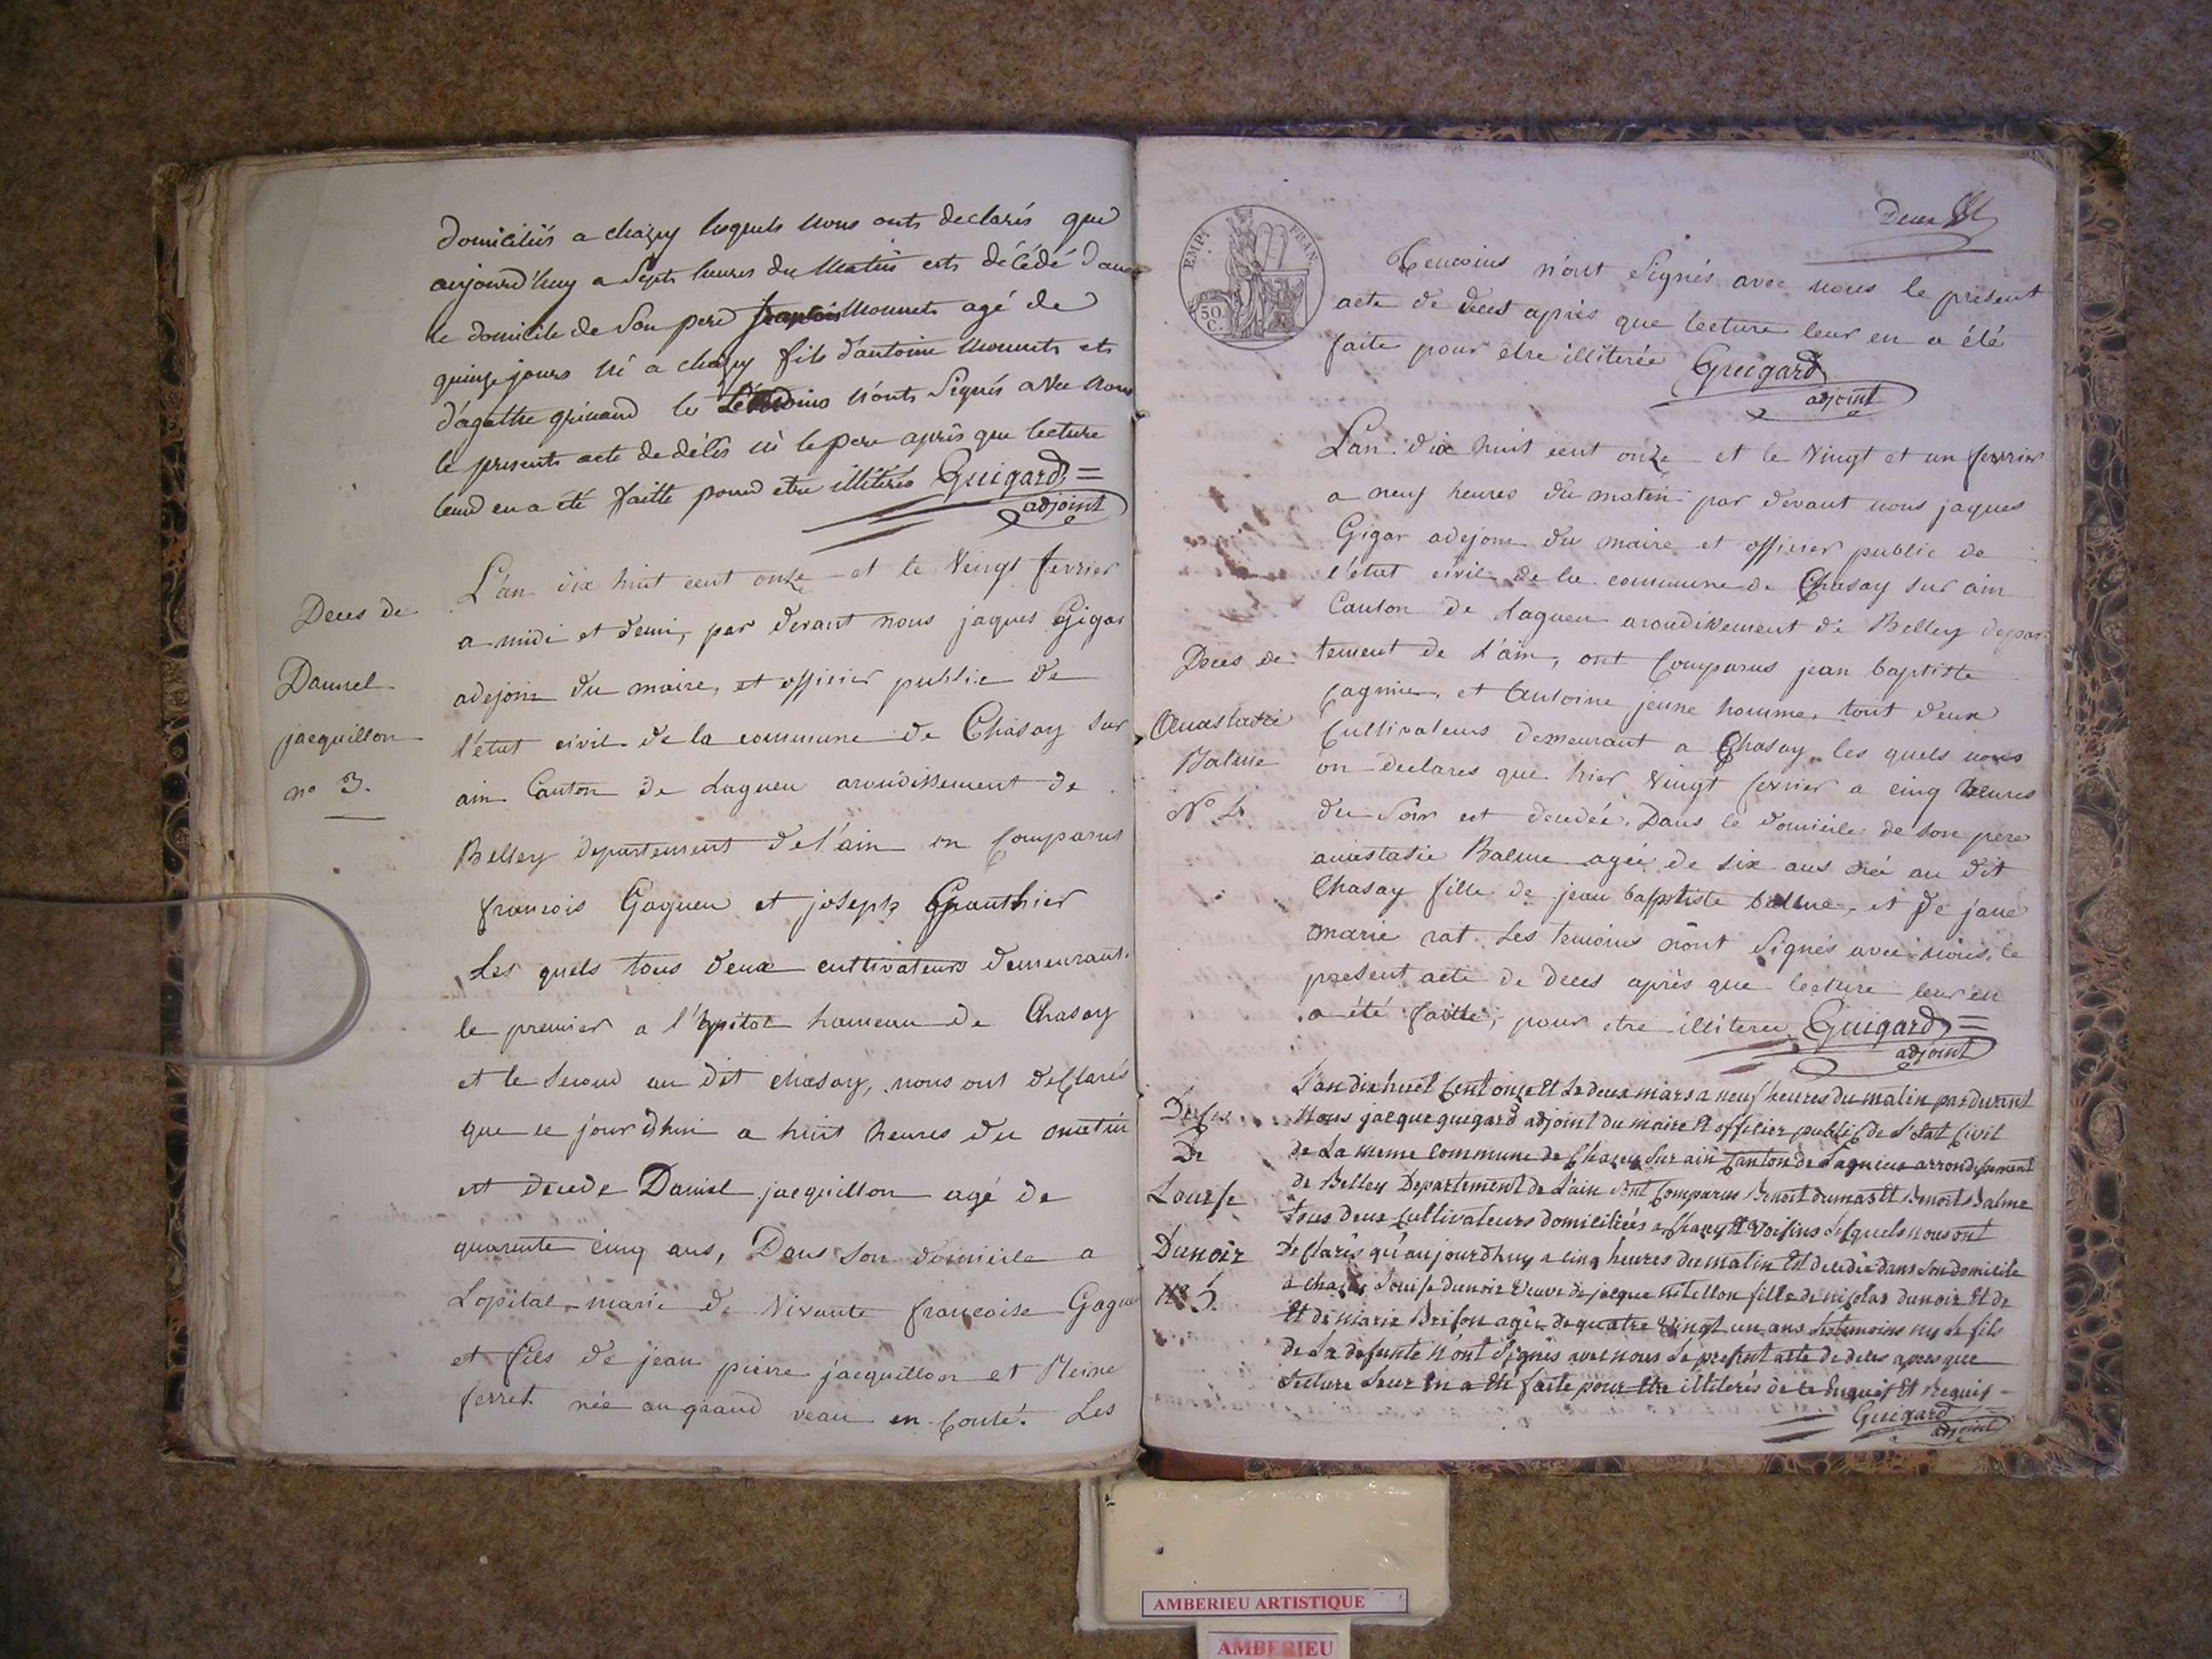 domiciliés a chazey lesquels nous onts declarés que
aujourd'huy a Septs heures du Matin ests décédé dans
le domicile de Son pere françois Monnets agé de
quinze jours né a chazey fils d'antoine Monnets ets
d'agathe grinand les témoins n'onts Signés avec nous
le presents acte de décès ni le pere après que lecture
leurd en a été faitte pourd etre illitérés Guigard
adjoint
Deces de
Daniel
jacquillon
no 3.
L'an dix huit cent onze et le Vingt fevrier
a midi et demi, par devant nous jaques Gigar
adejoin du maire, et officier public de
l'état civil de la commune de Chasay sur
ain Canton de Lagneu arondissement de
Belley departement de l'ain on Comparus
francois Gagneu et joseph Gauthier
Les quels tous deux cultivateurs demeurant
le premier a l'hopital hameau de Chasay
et le Second au dit chasay, nous ont declarés
que ce jour dhui a huit heures du matin
est decede Daniel jacquillon agé de
quarente cinq ans, Dans son domicile a
Lopital, marie de Vivante francoise Gagneu
et fils de jean pierre jacquillon et Reine
ferret née au grand veau en Conté. Les
Deux
EMP. FRAN.
50. C.
Temoins n'ont Signés avec nous le présent
acte de deces après que lecture leur en a été
faite pour etre illiterée Guigard
adjoint
Deces de
Anastasie
Balme
No 4
Lan dix huit cent onze et le Vingt et un fevrier
a neuf heures du matin par devant nous jaques
Gigar adejoin du maire et officier public de
l'état civil de la commune de Chasay sur ain
Canton de Lagneu arondissement de Belley depar
tement de L'ain, ont Comparus jean baptiste
Cagnin, et Antoine jeune homme, tout deux
Cultivateurs demeurant a Chasay, les quels nous
on declares que hier Vingt fevrier a cinq heures
du Soir est decedée. Dans le domicile de son pere
anastasie Balme agée de six ans née au dit
Chasay fille de jean baptiste balme, et de jane
marie rat. Les temoins nont Signés avec nous, le
present acte de deces après que lecture leur en
a été faitte, pour etre illiterée Guigard
adjoint
Deces
De
Louise
Dunoir
No 5.
L'an dix huet Cent onze Et Le deux mars a neuf heures du matin pardevant
Nous jacque guigard adjoint du maire Et officier public de L'état Civil
de La meme Commune de Chazey Sur ain Canton de Lagnieu arrondissement
de Belley Departement de L'ain Sont Comparus Benoit dumas Et Benoit Balme
Tous deux Cultivateurs domiciliés a Chazey Et Voisins Lesquels nous ont
Declarés qu'aujourdhuy a cinq heures du matin Est decedée dans Son domicile
a chazey Louise dunoir Veuve de jacque fille de nicolas dunoir Et de
Et de Marie Brison agée de quatre Vingt un ans Les temoins ny Le fils
de La defunte n'ont Signés avec nous Le present acte de deces apres que
Lecture Leur En a Eté faite pour Etre illiterés de ce Enquis Et Requis
Guigard
adjoint
AMBERIEU ARTISTIQUE
AMBERIEU